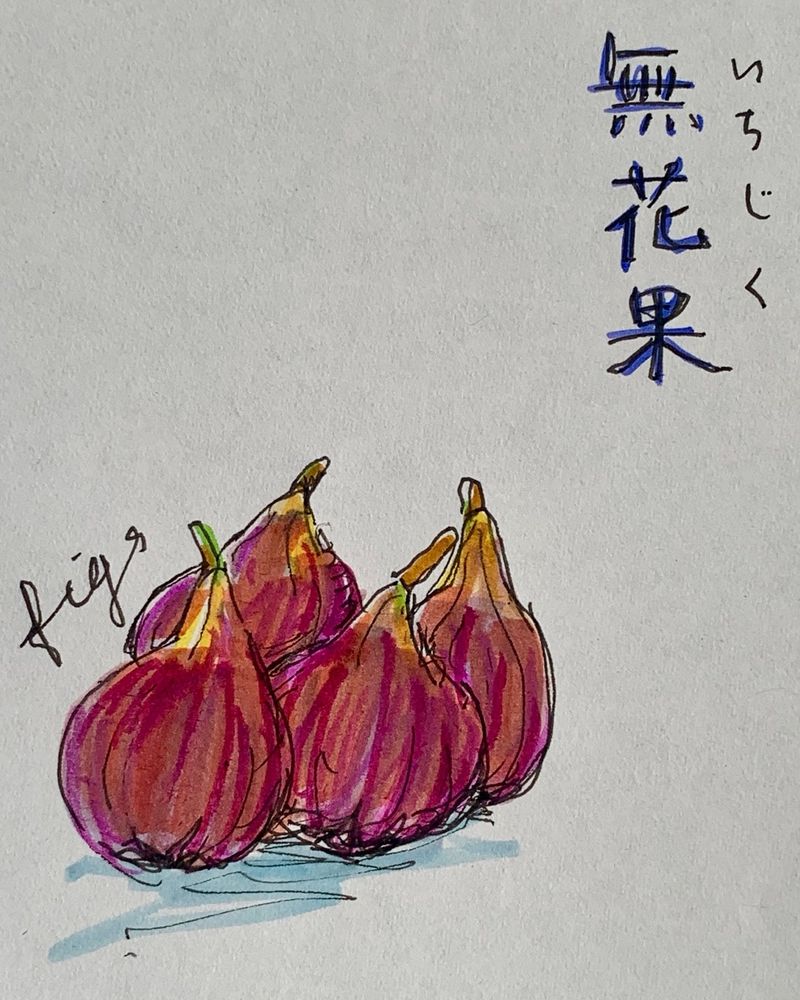 無花果
いちじく
figs